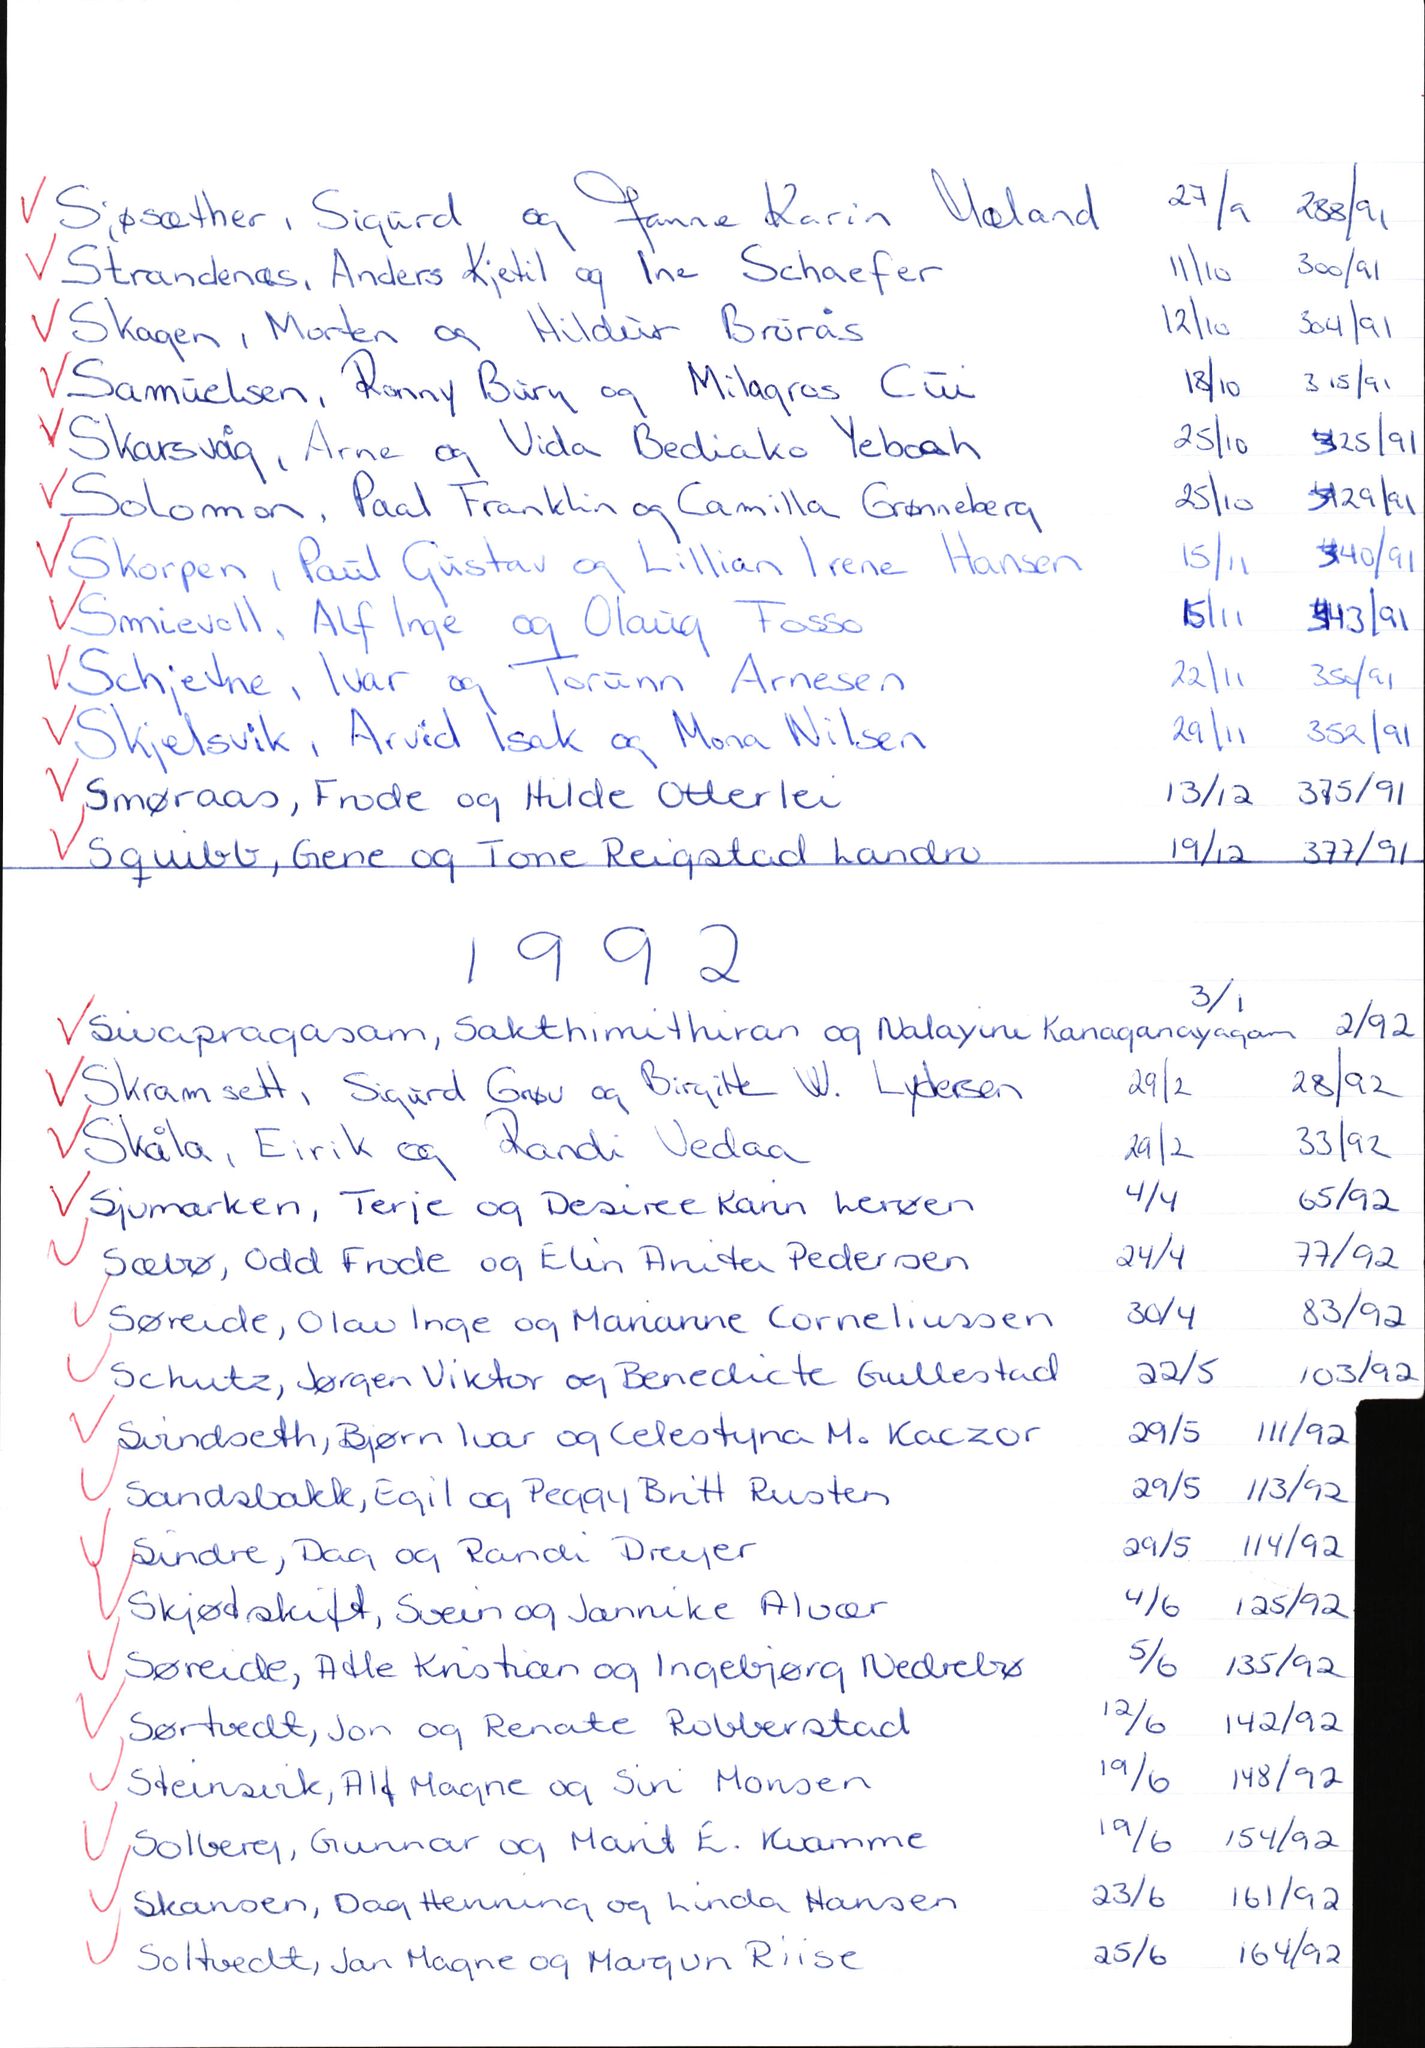 Sjøsæther, Sigurd og Janne Karin Mæland 27/9 288/91
Strandenæs, Anders Kjetil og Ine Schaefer 11/10 300/91
Skagen, Morten og Hildur Brurås 12/10 304/91
Samuelsen, Ronny Burg og Milagros Cui 18/10 315/91
Skarsvåg, Arne og Vida Bediako Yeboah 25/10 325/91
Solomon, Paal Franklin og Camilla Grønneberg 25/10 329/91
Skorpen, Paul Gustav og Lillian Irene Hansen 15/11 340/91
Smievoll, Alf Inge og Olaug Fosso 15/11 343/91
Schjetne, Ivar og Torunn Arnesen 22/11 350/91
Skjelsvik, Arvid Isak og Mona Nilsen 29/11 352/91
Smøraas, Frode og Hilde Otterlei 13/12 375/91
Squibb, Gene og Tone Reigstad Landro 19/12 377/91
1992
Sivapragasam, Sakthimithiran og Nalayini Kanaganayagam 3/1 2/92
Skramsett, Sigurd Grøv og Birgitte W. Lydersen 29/2 28/92
Skåla, Eirik og Randi Vedaa 29/2 33/92
Sjumarken, Terje og Desiree Karin Lerøen 4/4 65/92
Sæbø, Odd Frode og Elin Anita Pedersen 24/4 77/92
Søreide, Olav Inge og Marianne Corneliussen 30/4 83/92
Schutz, Jørgen Viktor og Benedicte Gullestad 22/5 103/92
Svindseth, Bjørn Ivar og Celestyna M. Kaczor 29/5 111/92
Sandsbakk, Egil og Peggy Britt Rusten 29/5 113/92
Sindre, Dag og Randi Dreyer 29/5 114/92
Skjødskift, Svein og Jannike Alvær 4/6 125/92
Søreide, Atle Kristian og Ingebjørg Nedrebø 5/6 135/92
Sørtvedt, Jon og Renate Robberstad 12/6 142/92
Steinsvik, Alf Magne og Siri Monsen 19/6 148/92
Solberg, Gunnar og Marit E. Kvamme 19/6 154/92
Skansen, Dag Henning og Linda Hansen 23/6 161/92
Soltvedt, Jan Magne og Margun Riise 25/6 164/92